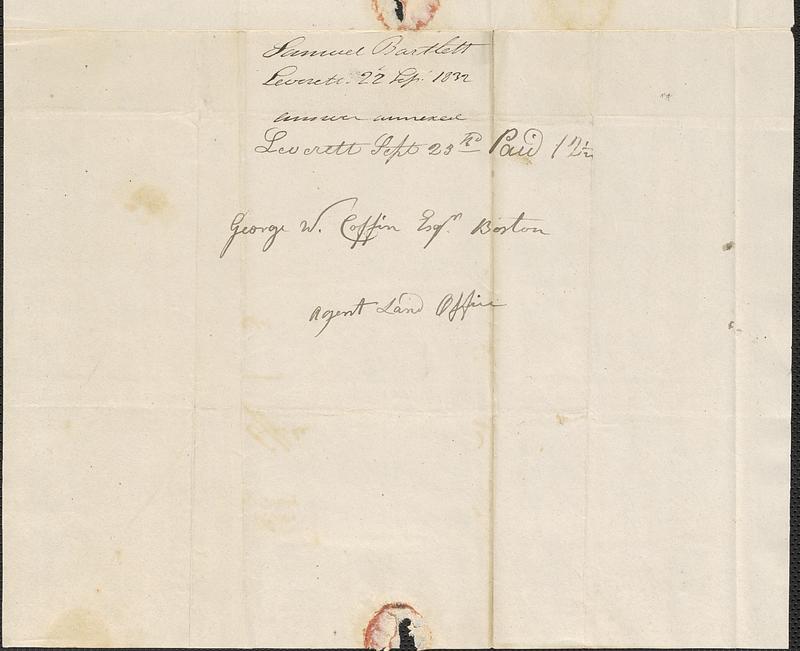 Samuel Bartlett
Leverett. 22 Sep. 1832
answer annexed
Leverett Sept 23rd Paid 12½
George W. Coffin Esqr. Boston
Agent Land Office